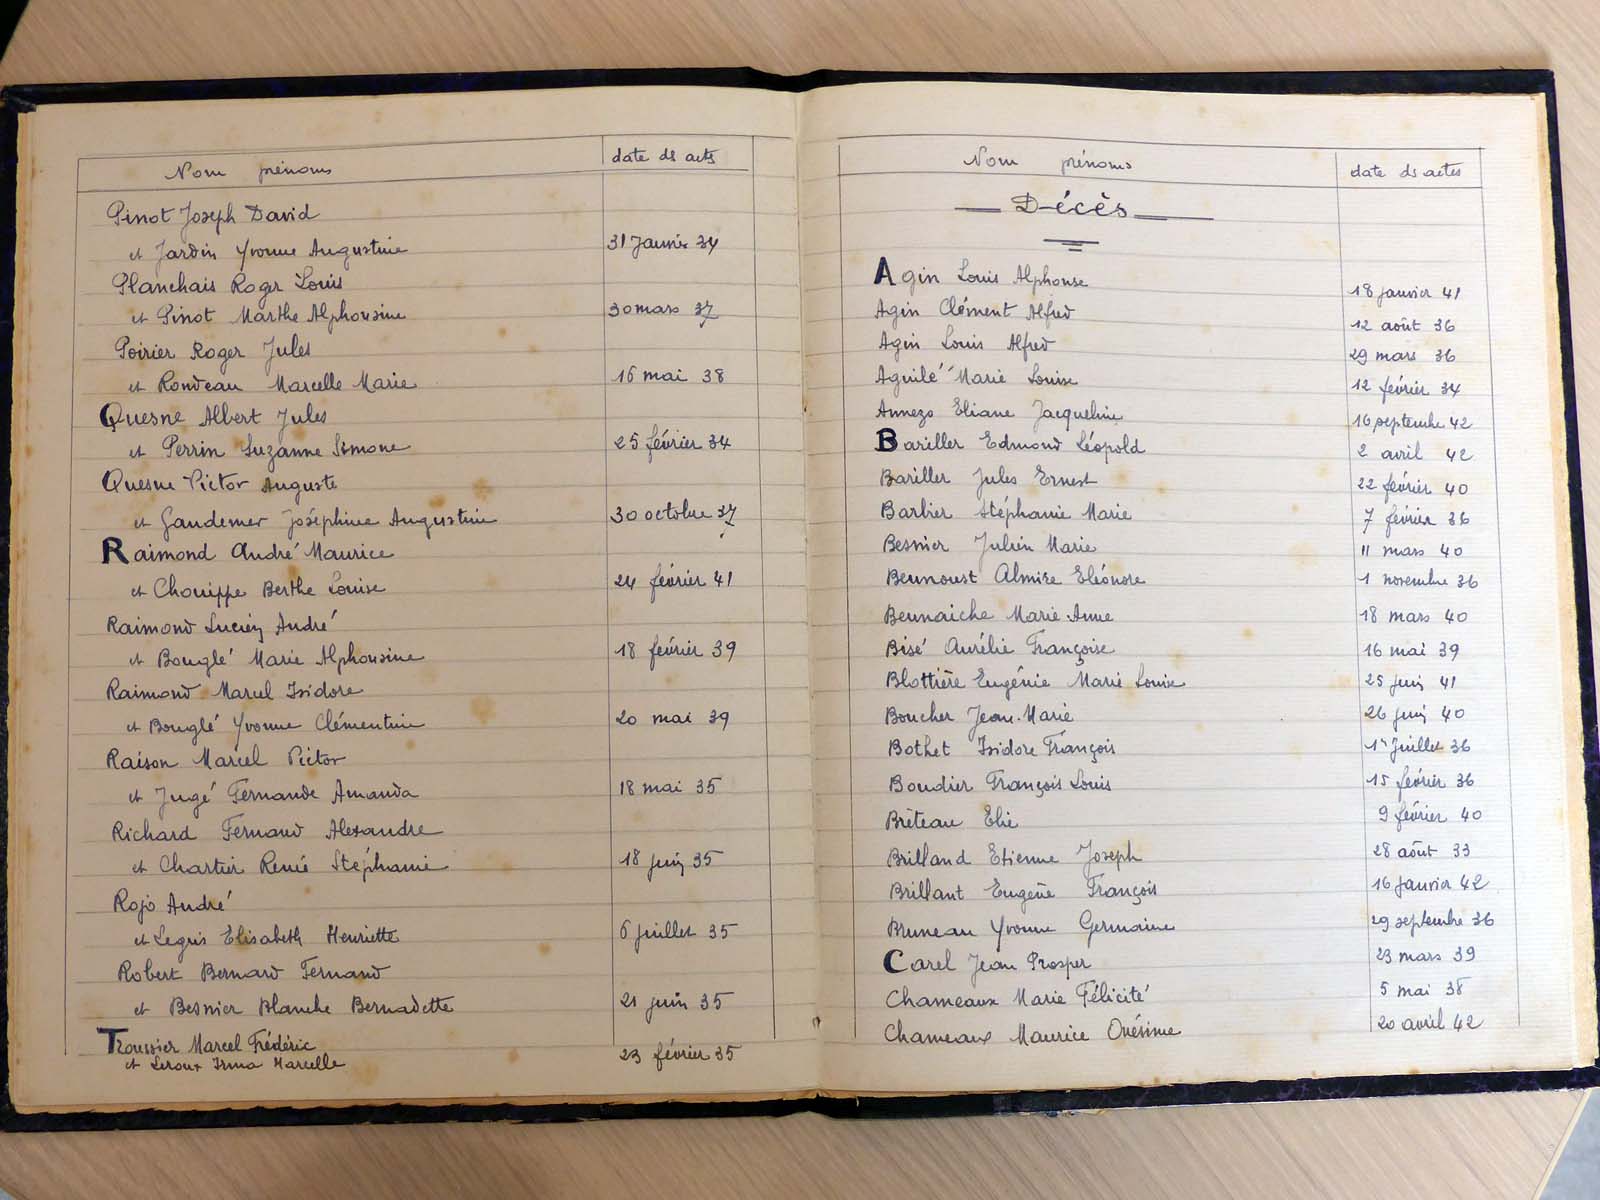 Nom prénoms date ds acts
Pinot Joseph David
et Jardin Yvonne Augustine 31 Janvier 34
Planchais Roger Louis
et Pinot Marthe Alphonsine 30 mars 37
Poirier Roger Jules
et Rondeau Marcelle Marie 16 mai 38
Quesne Albert Jules
et Perrin Suzanne Simone 25 février 34
Quesne Victor Auguste
et Gandemer Joséphine Augustine 30 octobre 37
Raimond André Maurice
et Chouippe Berthe Louise 24 février 41
Raimond Lucien André
et Bouglé Marie Alphonsine 18 février 39
Raimond Marcel Isidore
et Bouglé Yvonne Clémentine 20 mai 39
Raison Marcel Victor
et Jugé Fernande Amanda 18 mai 35
Richard Fernand Alexandre
et Chartier Renée Stéphanie 18 juin 35
Rojo André
et Legris Elisabeth Henriette 6 juillet 35
Robert Bernard Fernand
et Besnier Blanche Bernadette 21 juin 35
Troussier Marcel Frédéric
et Leroux Irma Marcelle 23 février 35
Nom prénoms date ds actes
Décès
Agin Louis Alphonse 18 janvier 41
Agin Clément Alfred 12 août 36
Agin Louis Alfred 29 mars 36
Aguilé Marie Louise 12 février 34
Annezo Eliane Jacqueline 16 septembre 42
Bariller Edmond Léopold 2 avril 42
Bariller Jules Ernest 22 février 40
Barbier Stéphanie Marie 7 février 36
Besnier Julien Marie 11 mars 40
Beunoust Almire Eléonore 1 novembre 36
Beunaiche Marie Anne 18 mars 40
Bisé Aurélie Françoise 16 mai 39
Blottière Eugénie Marie Louise 25 juin 41
Boucher Jean-Marie 26 juin 40
Bothet Isidore François 1er Juillet 36
Boudier François Louis 15 février 36
Brêteau Elie 9 février 40
Brilland Etienne Joseph 28 août 33
Brillant Eugène François 16 janvier 42
Bruneau Yvonne Germaine 29 septembre 36
Carel Jean Prosper 23 mars 39
Chameaux Marie Félicité 5 mai 38
Chameaux Maurice Onésime 20 avril 42